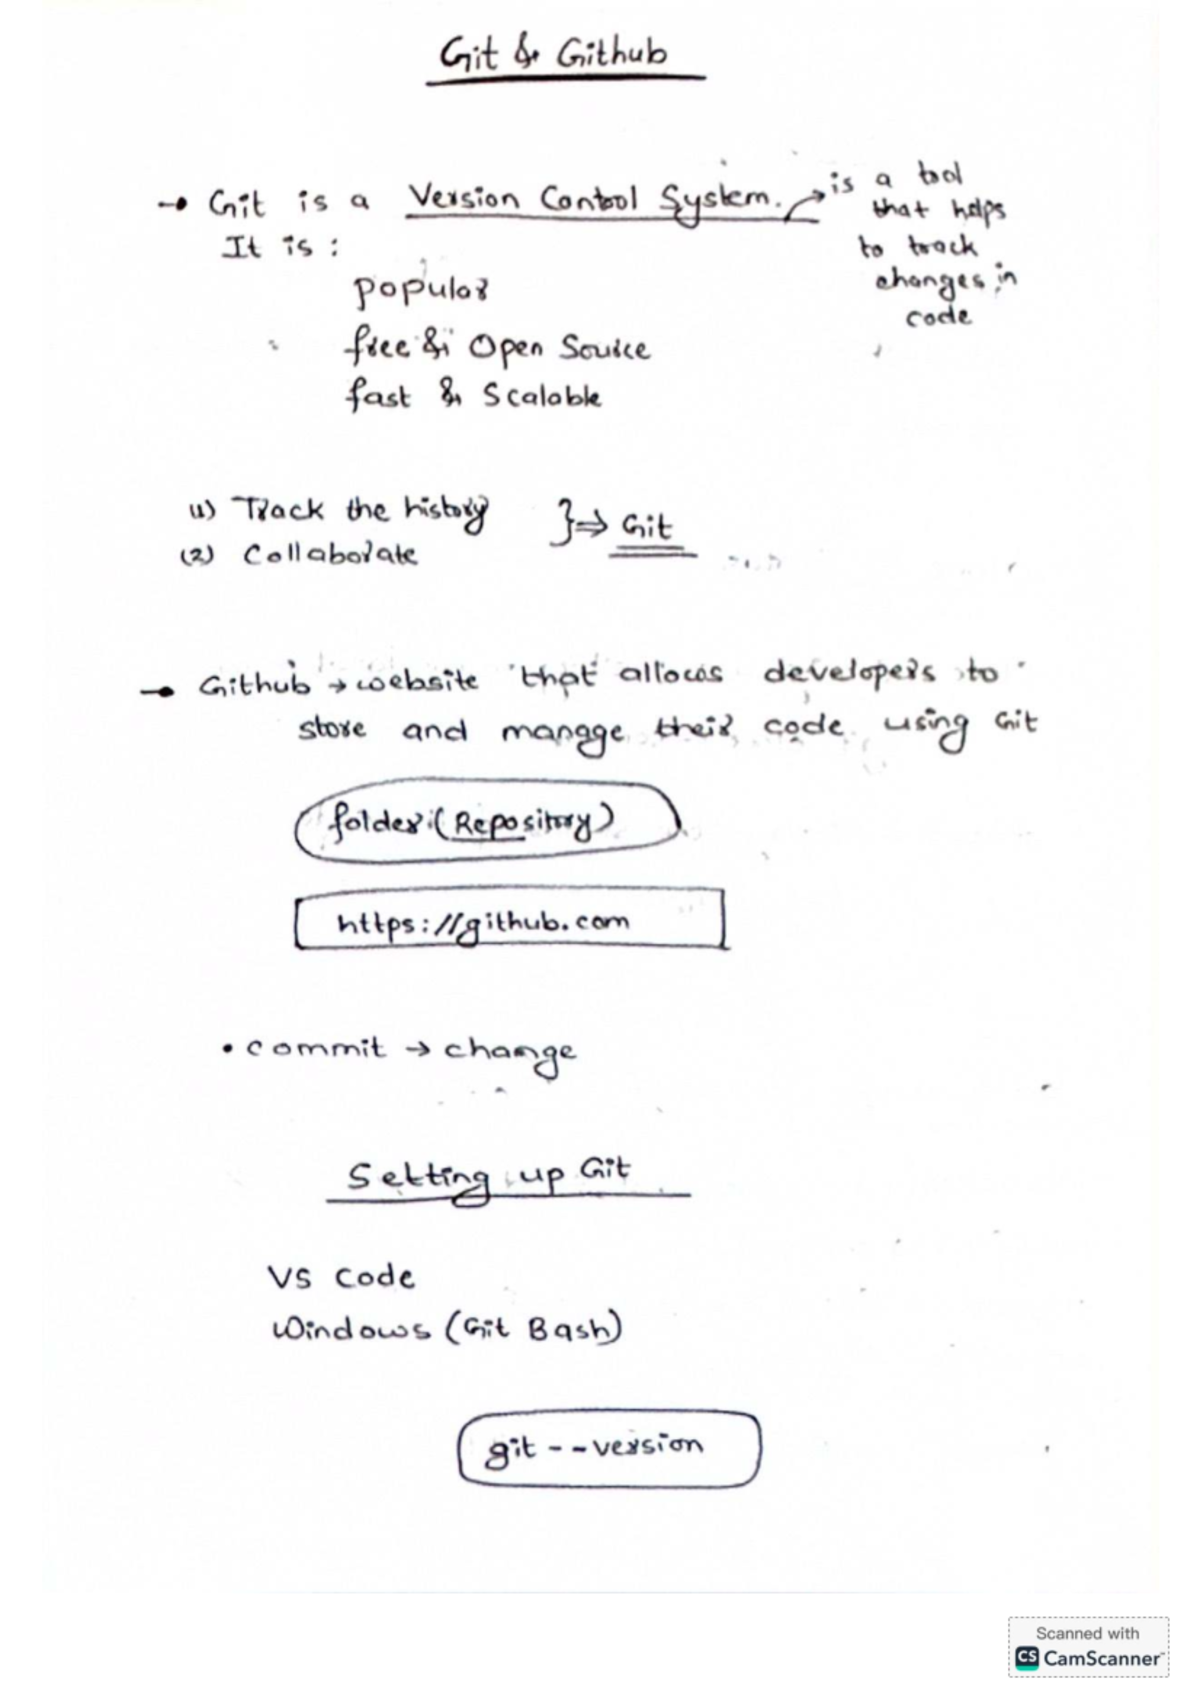 Git & Github
→ Git is a Version Control System. → is a tool
that helps
to track
changes in
code
It is :
popular
free & Open Source
fast & Scalable
(1) Track the history } ⇒ Git
(2) Collaborate
→ Github → website that allows developers to
store and manage their code using Git
folder (Repository)
https://github.com
• commit → change
Setting up Git
VS Code
Windows (Git Bash)
git --version
Scanned with
CS CamScanner